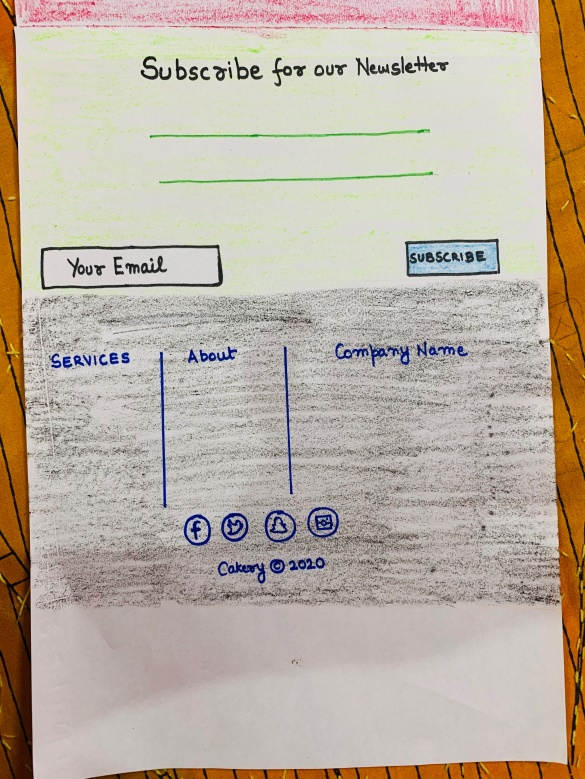 Subscribe for our Newsletter
Your Email
SUBSCRIBE
SERVICES
About
Company Name
f
Cakery © 2020